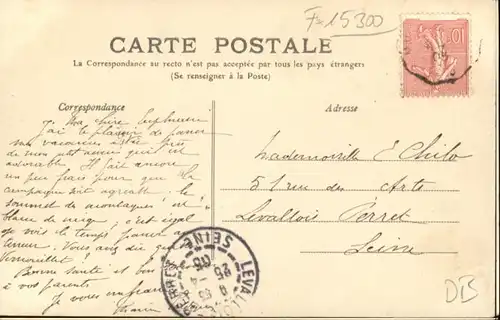 F=15300
CARTE POSTALE
La Correspondance au recto n'est pas acceptée par tous les pays étrangers
(Se renseigner à la Poste)
Correspondance
Adresse
Ma chère
j'ai le plaisir de passer
mes vacances
de mon petit amour qui est
adorable. Il fait encore
un peu frais pour que la
campagne soit agréable. le
sommet des montagnes est
blanc de neige; c'est égal
je vois le temps passer avec
terreur. Vous avez dit que
Bonne santé et bon
à vos parents
Je vous embrasse
Mademoiselle E Chilo
51 rue des Arts
Levallois Perret
Seine
LEVALLOIS-PERRET
SEINE
25
05
10
DB